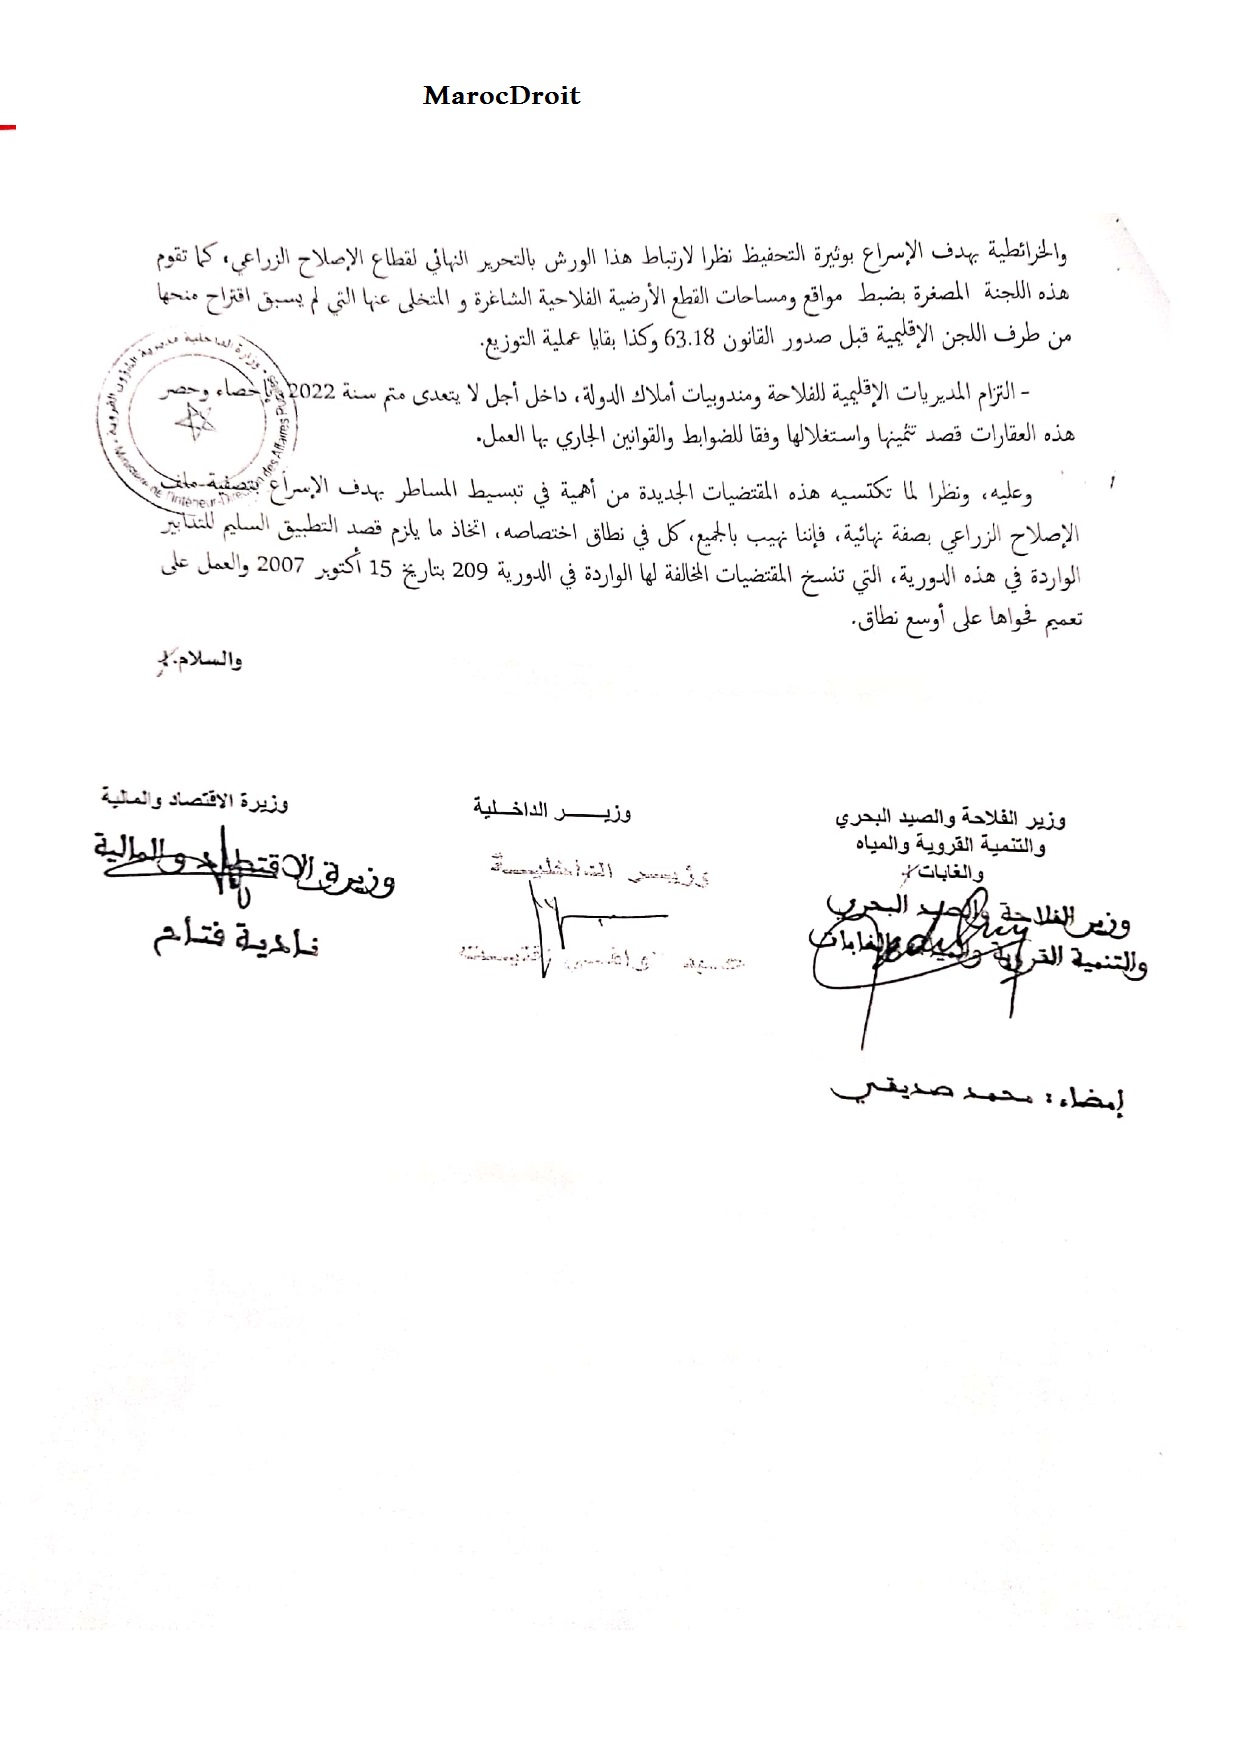 MarocDroit
والخرائطية بهدف الإسراع بوثيرة التحفيظ نظرا لارتباط هذا الورش بالتحرير النهائي لقطاع الإصلاح الزراعي، كما تقوم
هذه اللجنة المصغرة بضبط مواقع ومساحات القطع الأرضية الفلاحية الشاغرة و المتخلى عنها التي لم يسبق اقتراح منحها
من طرف اللجن الإقليمية قبل صدور القانون 63.18 وكذا بقايا عملية التوزيع.
- التزام المديريات الإقليمية للفلاحة ومندوبيات أملاك الدولة، داخل أجل لا يتعدى متم سنة 2022 بإحصاء وحصر
هذه العقارات قصد تثمينها واستغلالها وفقا للضوابط والقوانين الجاري بها العمل.
وزارة الداخلية مديرية الشؤون القروية
Ministère de l'Intérieur-Direction des Affaires
وعليه، ونظرا لما تكتسيه هذه المقتضيات الجديدة من أهمية في تبسيط المساطر بهدف الإسراع بتصفية ملف
الإصلاح الزراعي بصفة نهائية، فإننا نهيب بالجميع، كل في نطاق اختصاصه، اتخاذ ما يلزم قصد التطبيق السليم للتدابير
الواردة في هذه الدورية، التي تنسخ المقتضيات المخالفة لها الواردة في الدورية 209 بتاريخ 15 أكتوبر 2007 والعمل على
تعميم فحواها على أوسع نطاق.
والسلام.
وزير الفلاحة والصيد البحري
والتنمية القروية والمياه
والغابات
وزير الفلاحة والصيد البحري
والتنمية القروية والمياه والغابات
إمضاء: محمد صديقي
وزيـــر الداخـلـية
وزيــر الداخليــة
وزيرة الاقتصاد والمالية
وزيرة الاقتصاد والمالية
نادية فتاح